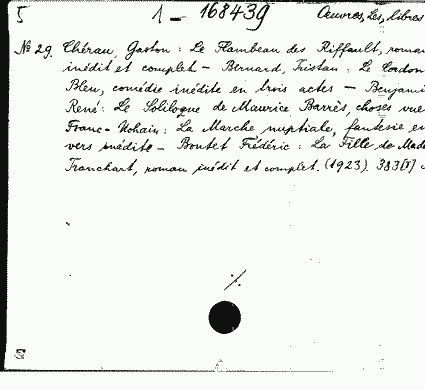 5 1 - 168439 Oeuvres, Les, libres
No 29. Chérau, Gaston : Le Flambeau des Riffault, roman
inédit et complet - Bernard, Tristan : Le Cordon
Bleu, comédie inédite en trois actes - Benjami
René : Le Soliloque de Maurice Barrès, choses vue
Franc-Nohain : La Marche nuptiale, fantesie en
vers inédite - Boutet Frédéric : La Fille de Made
Tranchart, roman inédit et complet. (1923). 383 [1]